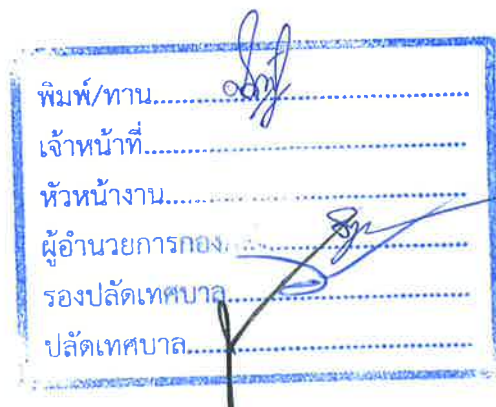 พิมพ์/ทาน
เจ้าหน้าที่
หัวหน้างาน
ผู้อำนวยการกอง
รองปลัดเทศบาล
ปลัดเทศบาล